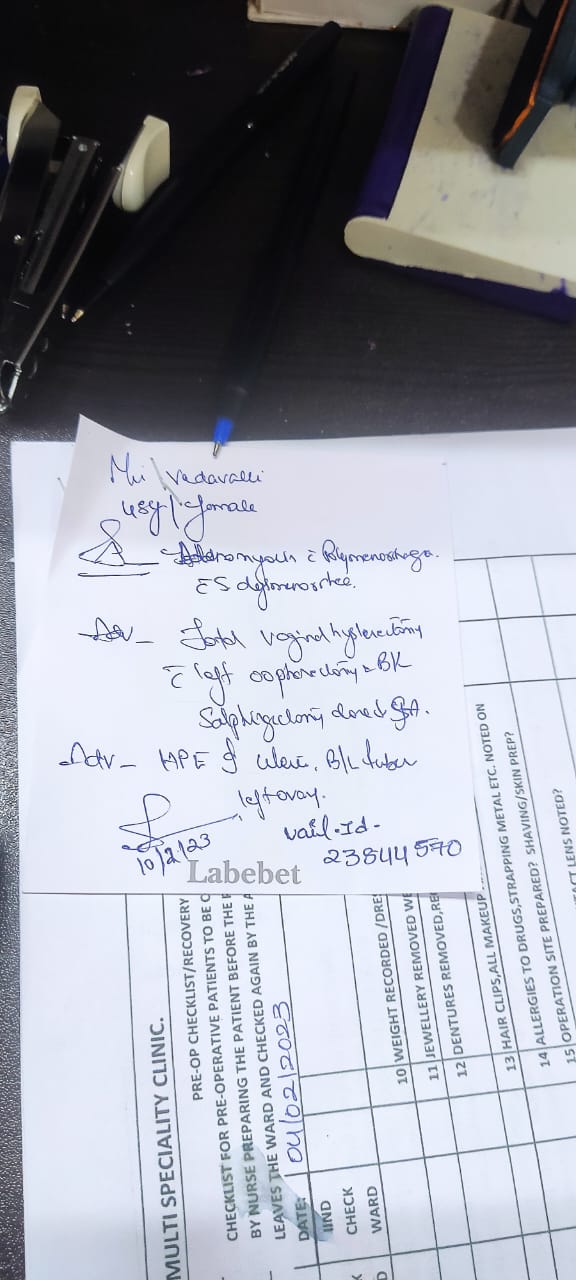 Vadavalli
48y/female
c̄ Polymenorrhagia.
c̄ S dysmenorrhea.
Total vaginal hysterectomy
c̄ left oophorectomy & B/L
Salphingectomy done ↓ SA.
Adv - HPE of uterus, B/L tubes
left ovary.
10/2/23
vail-Id-
23844570
Labebet
MULTI SPECIALITY CLINIC.
PRE-OP CHECKLIST/RECOVERY
CHECKLIST FOR PRE-OPERATIVE PATIENTS TO BE
BY NURSE PREPARING THE PATIENT BEFORE THE
LEAVES THE WARD AND CHECKED AGAIN BY THE
DATE: 04/02/2023
IIND
CHECK
WARD
10 WEIGHT RECORDED /DRE
11 JEWELLERY REMOVED WE
12 DENTURES REMOVED,RE
13 HAIR CLIPS,ALL MAKEUP, STRAPPING METAL ETC. NOTED ON
14 ALLERGIES TO DRUGS, SHAVING/SKIN PREP?
15 OPERATION SITE PREPARED?
LENS NOTED?